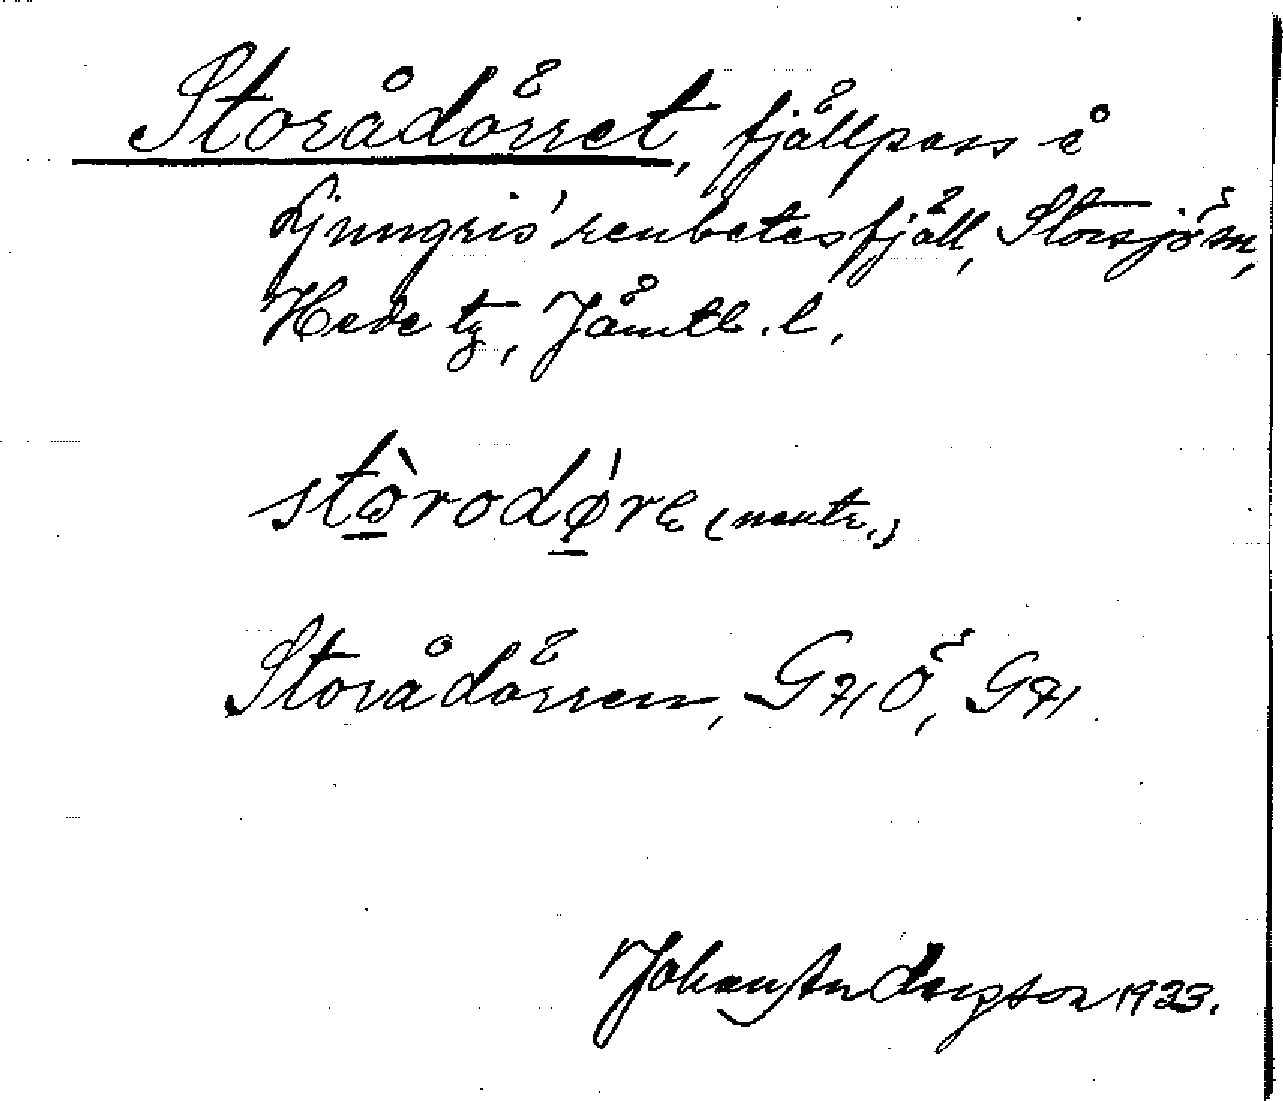 Storådörret, fjällpass å
Ljungris' renbetesfjäll, Storsjö sn,
Hede tg, Jämtl. l.
stòrodǿre (neutr.)
Storådörren, G 71 Ö, G 71
Johan Andersson 1923.